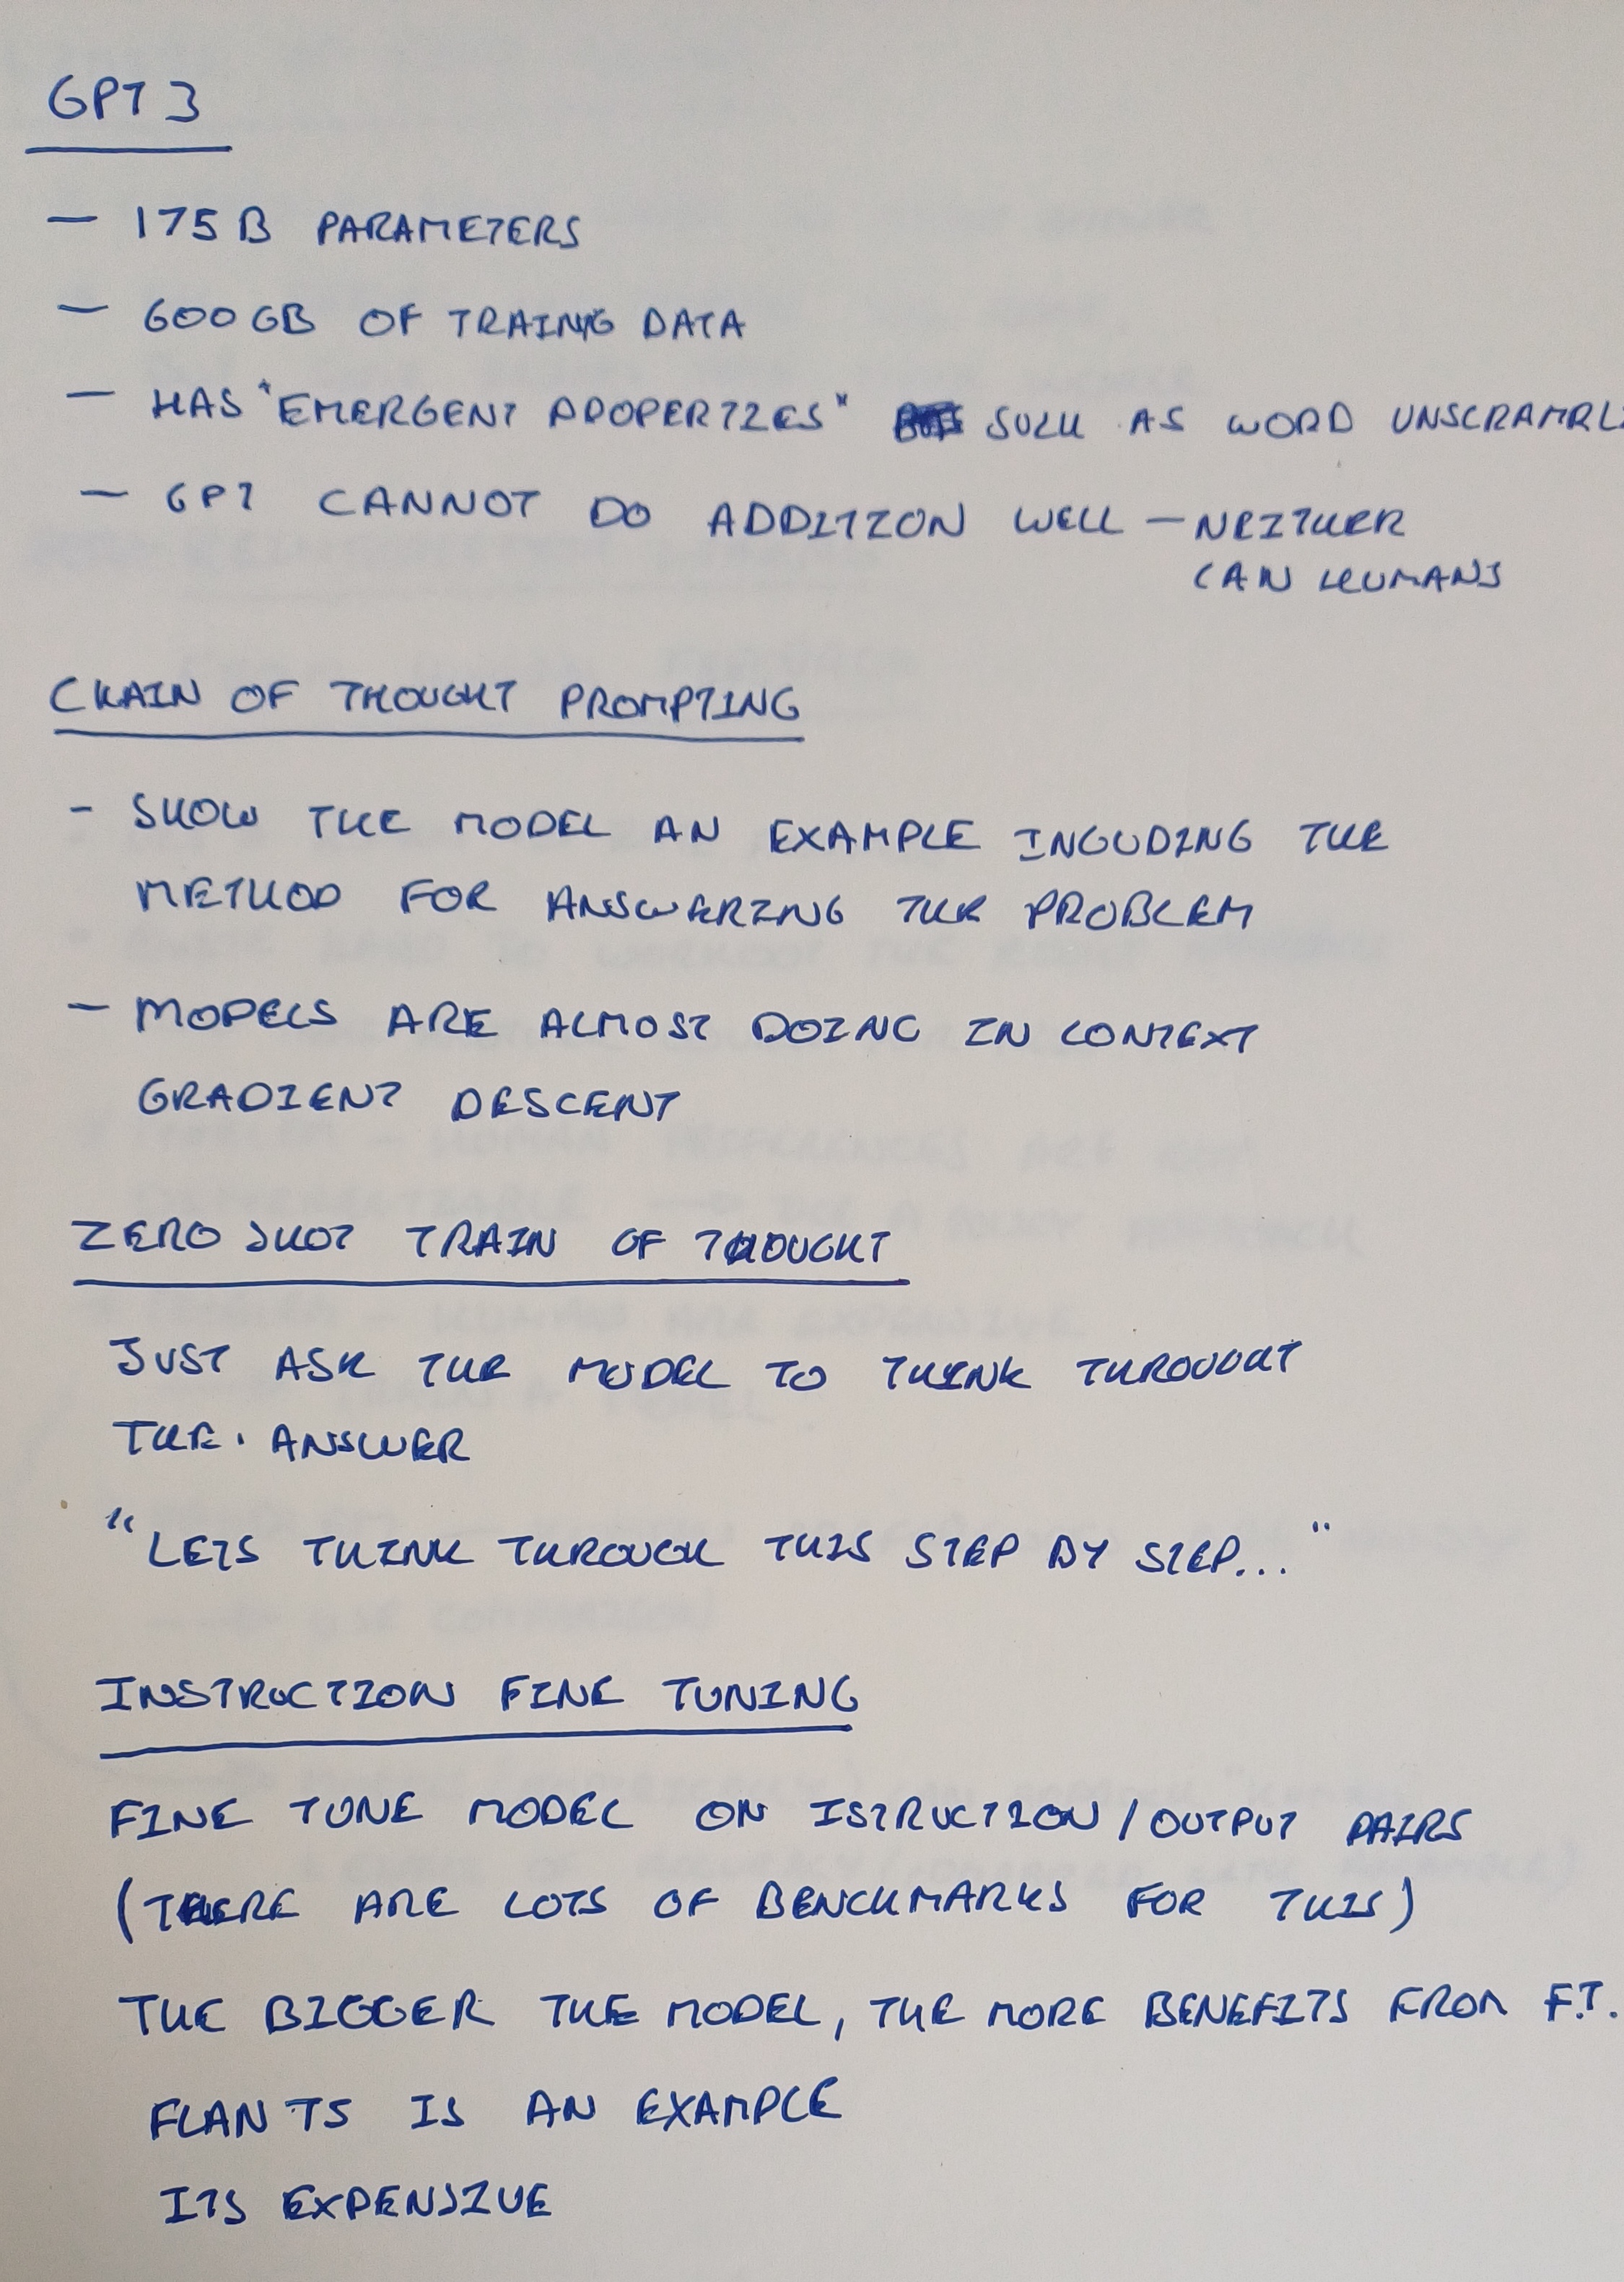 GPT 3
— 175B PARAMETERS
— 600GB OF TRAINING DATA
— HAS "EMERGENT PROPERTIES" SUCH AS WORD
— GPT CANNOT DO ADDITION WELL — NEITHER
CAN HUMANS
CHAIN OF THOUGHT PROMPTING
- SHOW THE MODEL AN EXAMPLE INCLUDING THE
METHOD FOR ANSWERING THE PROBLEM
— MODELS ARE ALMOST DOING IN CONTEXT
GRADIENT DESCENT
ZERO SHOT TRAIN OF THOUGHT
JUST ASK THE MODEL TO THINK THROUGHT
THE ANSWER
"LETS THINK THROUGH THIS STEP BY STEP..."
INSTRUCTION FINE TUNING
FINE TUNE MODEL ON ISTRUCTION/OUTPUT PAIRS
(THERE ARE LOTS OF BENCHMARKS FOR THIS)
THE BIGGER THE MODEL, THE MORE BENEFITS FROM F.T.
FLAN T5 IS AN EXAMPLE
ITS EXPENSIVE